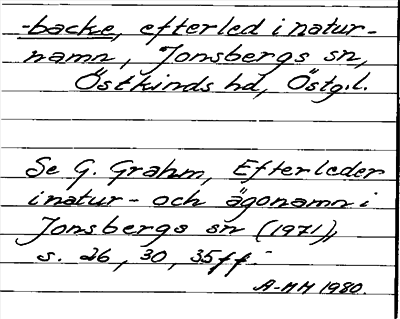 -backe, efterled i natur-
namn, Jonsbergs sn,
Östkinds hd, Östg.l.
Se G. Grahm, Efterleder
i natur- och ägonamn i
Jonsbergs sn (1971),
s. 26, 30, 35 ff.
A-MH 1980.